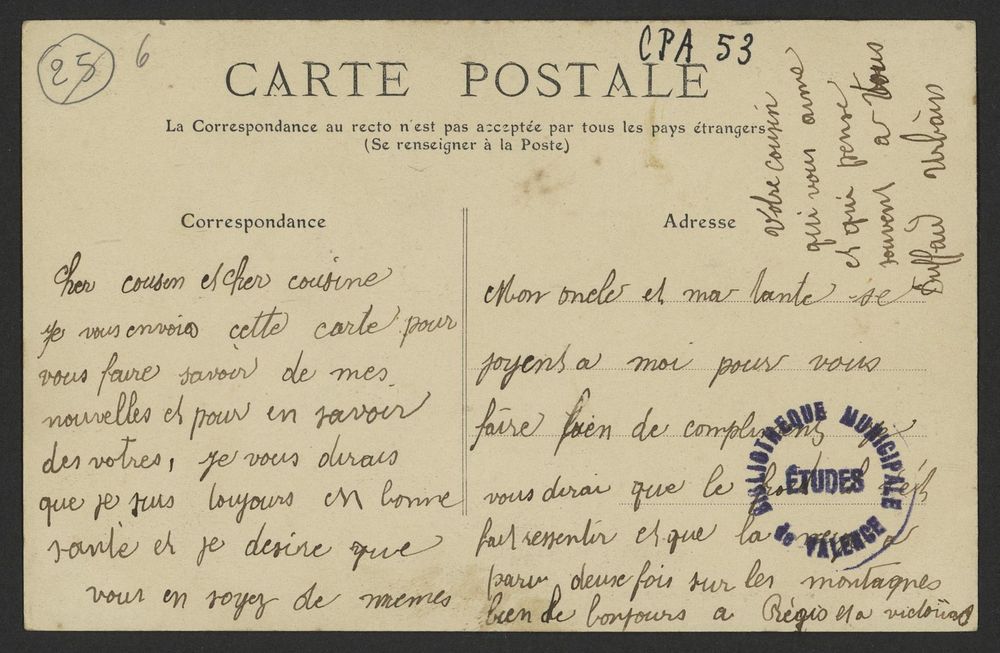 25
6
CPA 53
CARTE POSTALE
La Correspondance au recto n'est pas acceptée par tous les pays étrangers
(Se renseigner à la Poste)
Correspondance
Cher cousin et cher cousine
je vous envoie cette carte pour
vous faire savoir de mes
nouvelles et pour en savoir
des votres, je vous dirais
que je suis toujours en bonne
santé et je desire que
vous en soyez de memes
Adresse
Mon oncle et ma tante se
joyent a moi pour vous
faire bien de compliments je
vous dirai que le froid c'est
fait ressentir et que la neige a
paru deuse fois sur les montagnes
bien de bonjours a Régis et a
Votre cousin
qui vous aime
et qui pense
souvent a vous
Urbain
BIBLIOTHEQUE MUNICIPALE
ÉTUDES
de VALENCE